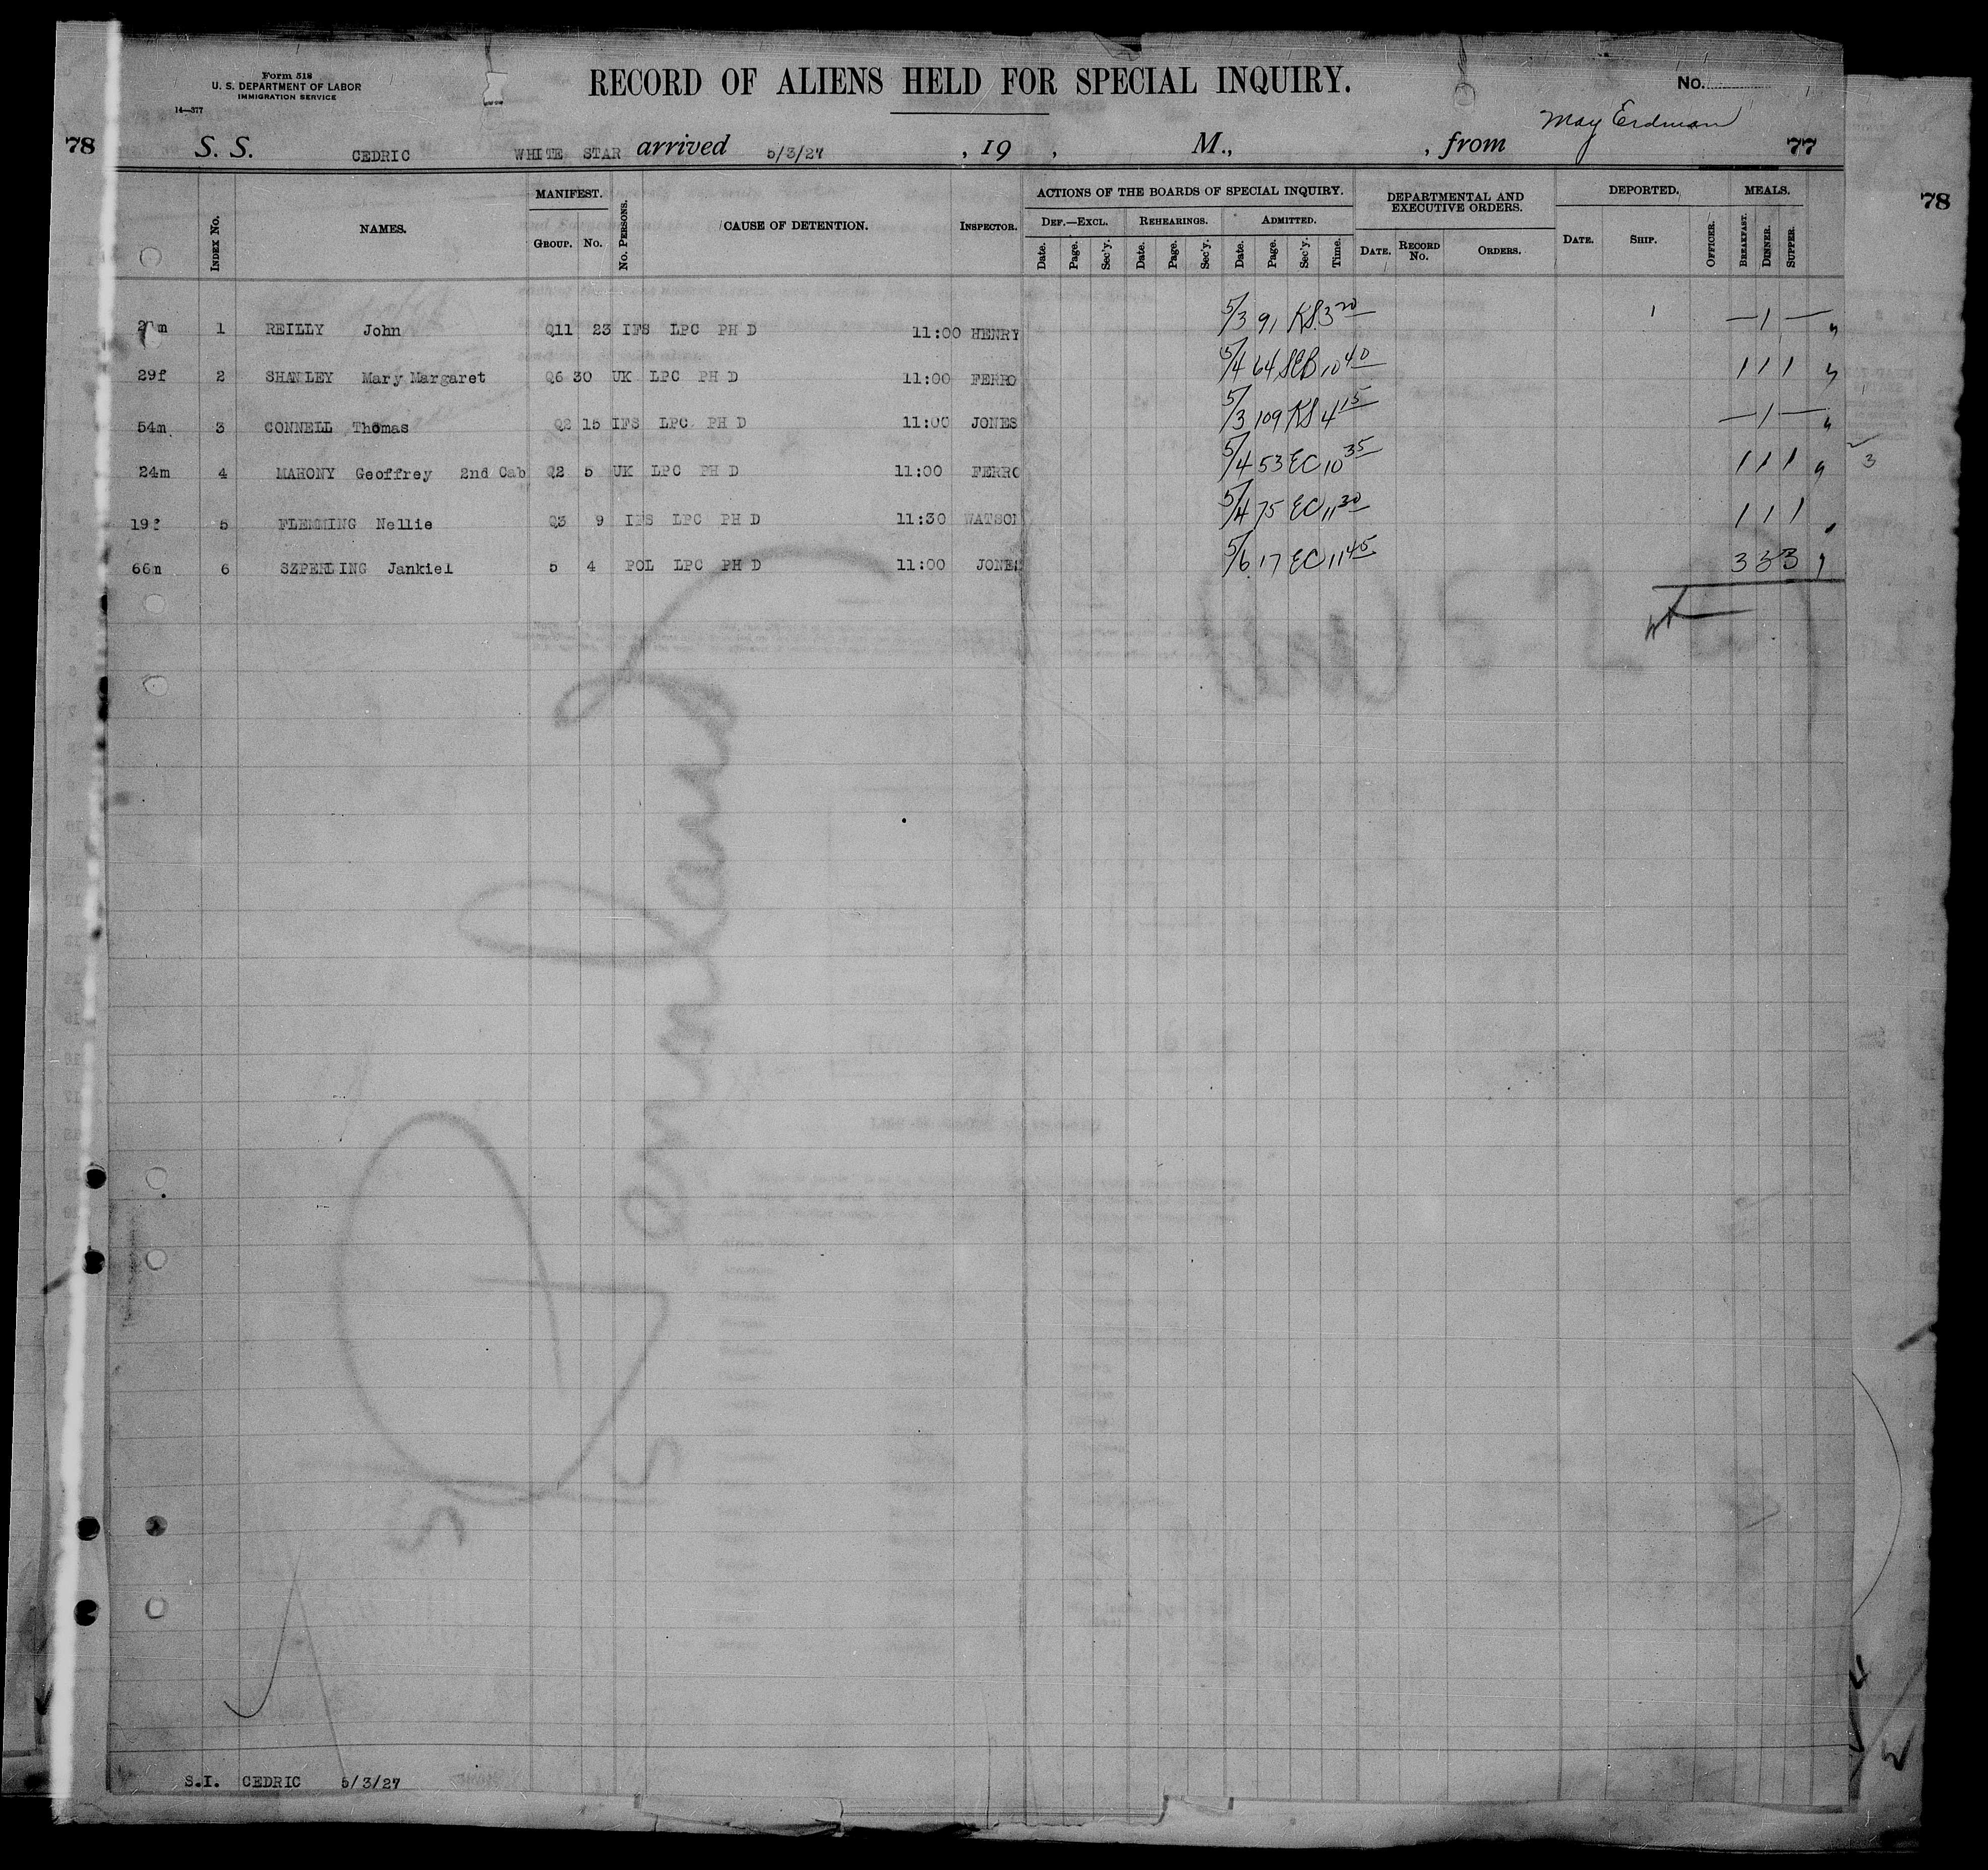 Form 518
U. S. DEPARTMENT OF LABOR
IMMIGRATION SERVICE
14—377
RECORD OF ALIENS HELD FOR SPECIAL INQUIRY.
No.
May Erdman
78 S. S. CEDRIC WHITE STAR arrived 5/3/27 , 19 , M., , from 77
78
INDEX No. NAMES. MANIFEST. GROUP. No. No. PERSONS. CAUSE OF DETENTION. INSPECTOR. ACTIONS OF THE BOARDS OF SPECIAL INQUIRY. DEPARTMENTAL AND EXECUTIVE ORDERS. DEPORTED. MEALS.
DEF.—EXCL. REHEARINGS. ADMITTED.
Date. Page. Sec'y. Date. Page. Sec'y. Date. Page. Sec'y. Time. DATE. RECORD No. ORDERS. DATE. SHIP. OFFICER. BREAKFAST. DINNER. SUPPER.
1 REILLY John Q11 23 IFS LPC PH D 11:00 HENRY 5/3 91 KS 3 20 — 1 —
29f 2 SHANLEY Mary Margaret Q6 30 UK LPC PH D 11:00 FERRO 5/4 64 10 40 1 1 1
54m 3 CONNELL Thomas Q2 15 IFS LPC PH D 11:00 JONES 5/3 109 KS 4 15 — 1 —
24m 4 MAHONY Geoffrey 2nd Cab Q2 5 UK LPC PH D 11:00 FERRO 5/4 53 EC 10 35 1 1 1
19f 5 FLEMMING Nellie Q3 9 IFS LPC PH D 11:30 WATSON 5/4 75 EC 11 30 1 1 1
66m 6 SZPERLING Jankiel 5 4 POL LPC PH D 11:00 JONES 5/6 17 EC 11 45 3 3 3
S.I. CEDRIC 5/3/27